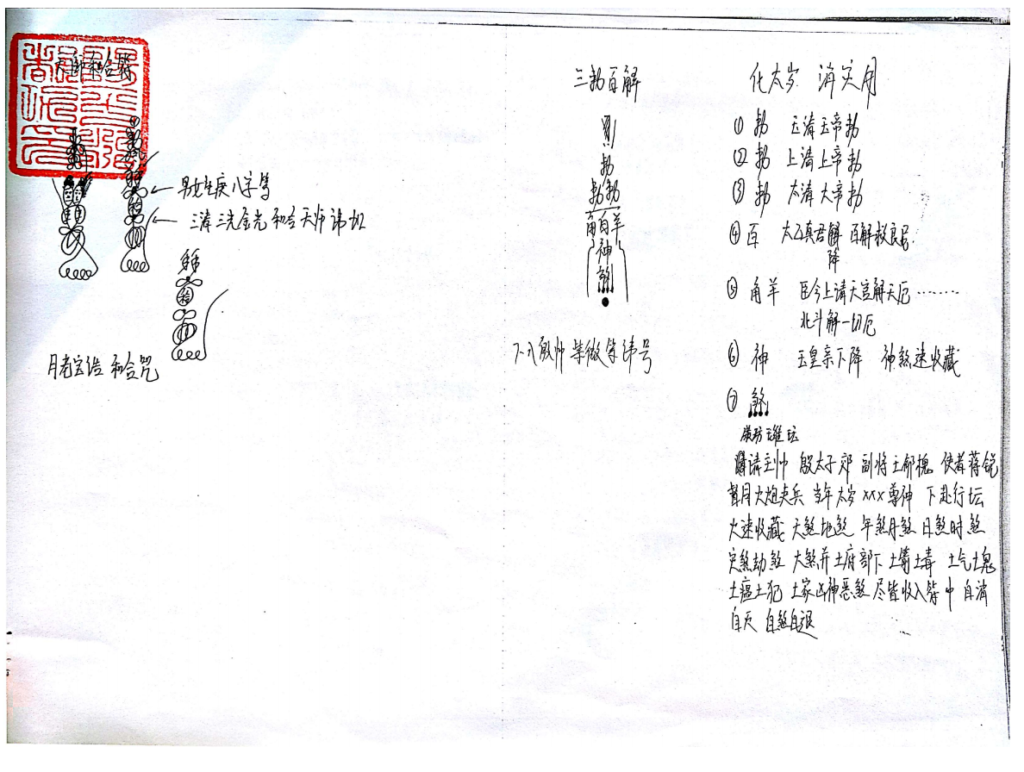 天师和合符
男女生庚八字等
三清三光金光和合天师讳加
月老宝诰 和合咒
三勅百解
勅
勅勅
角百羊
神
煞
化太岁 消灾用
① 勅 玉清玉帝勅
② 勅 上清上帝勅
③ 勅 太清大帝勅
④ 百 太乙真君解 百解救良民
降
⑤ 角羊 臣今上请大宣解天厄………
北斗解一切厄
⑥ 神 玉皇亲下降 神煞速收藏
⑦ 煞
请主帅 殷太子邓 副将 使者蒋锐
当年太岁 xxx尊神 下赴行坛
火速收藏 天煞地煞 年煞月煞 日煞时煞
灾煞劫煞 大煞并土府部下 土毒 土气土鬼
土瘟土犯 土家凶神恶煞 尽皆收入符中 自消
自灭 自煞自退